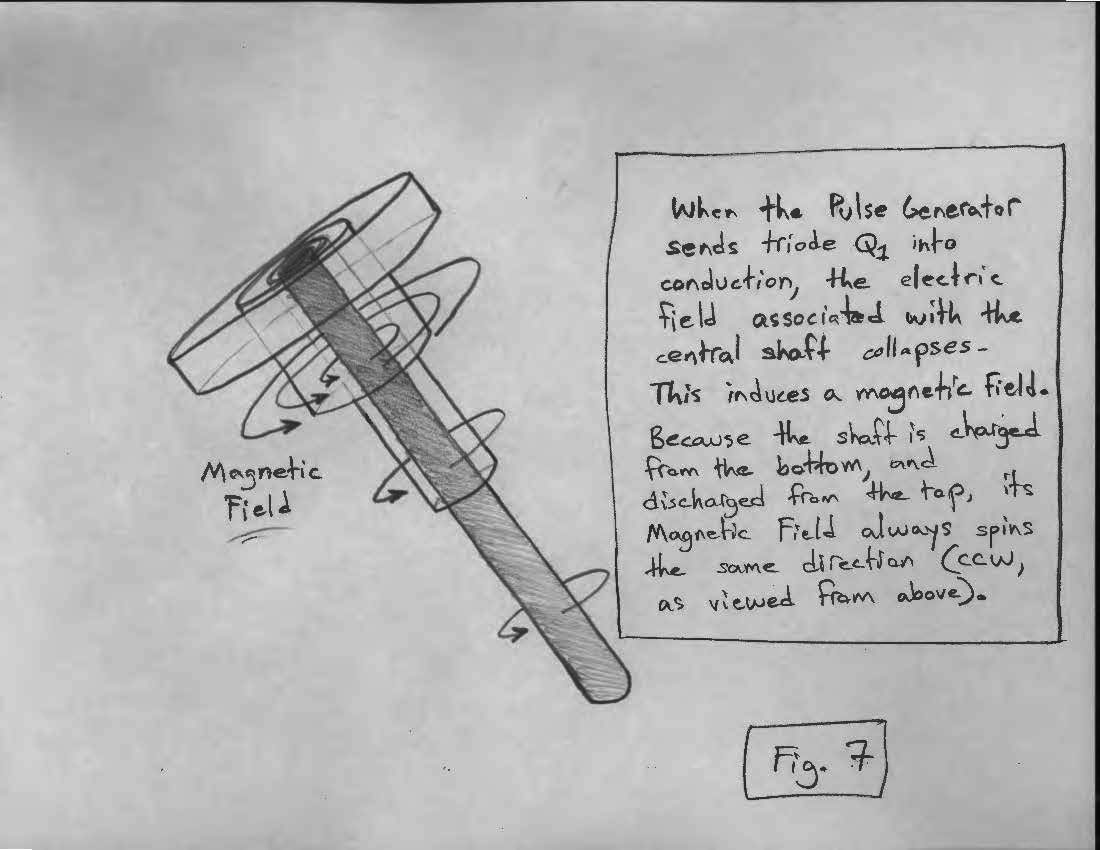 When the Pulse Generator
sends triode Q1 into
conduction, the electric
field associated with the
central shaft collapses.
This induces a magnetic field.
Because the shaft is charged
from the bottom, and
discharged from the top, its
Magnetic Field always spins
the same direction (ccw,
as viewed from above).
Magnetic
Field
Fig. 7